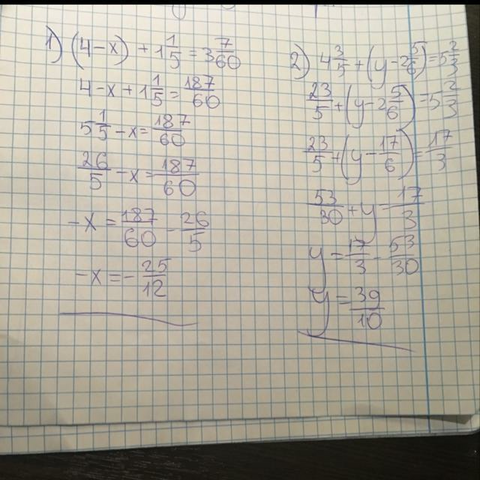 1) (4-x) + 1 1/5 = 3 7/60
4-x + 1 1/5 = 187/60
5 1/5 - x = 187/60
26/5 - x = 187/60
-x = 187/60 - 26/5
-x = - 25/12
2) 4 3/5 + (y - 2 5/6) = 5 2/3
23/5 + (y - 2 5/6) = 5 2/3
23/5 + (y - 17/6) = 17/3
53/30 + y = 17/3
y = 17/3 - 53/30
y = 39/10